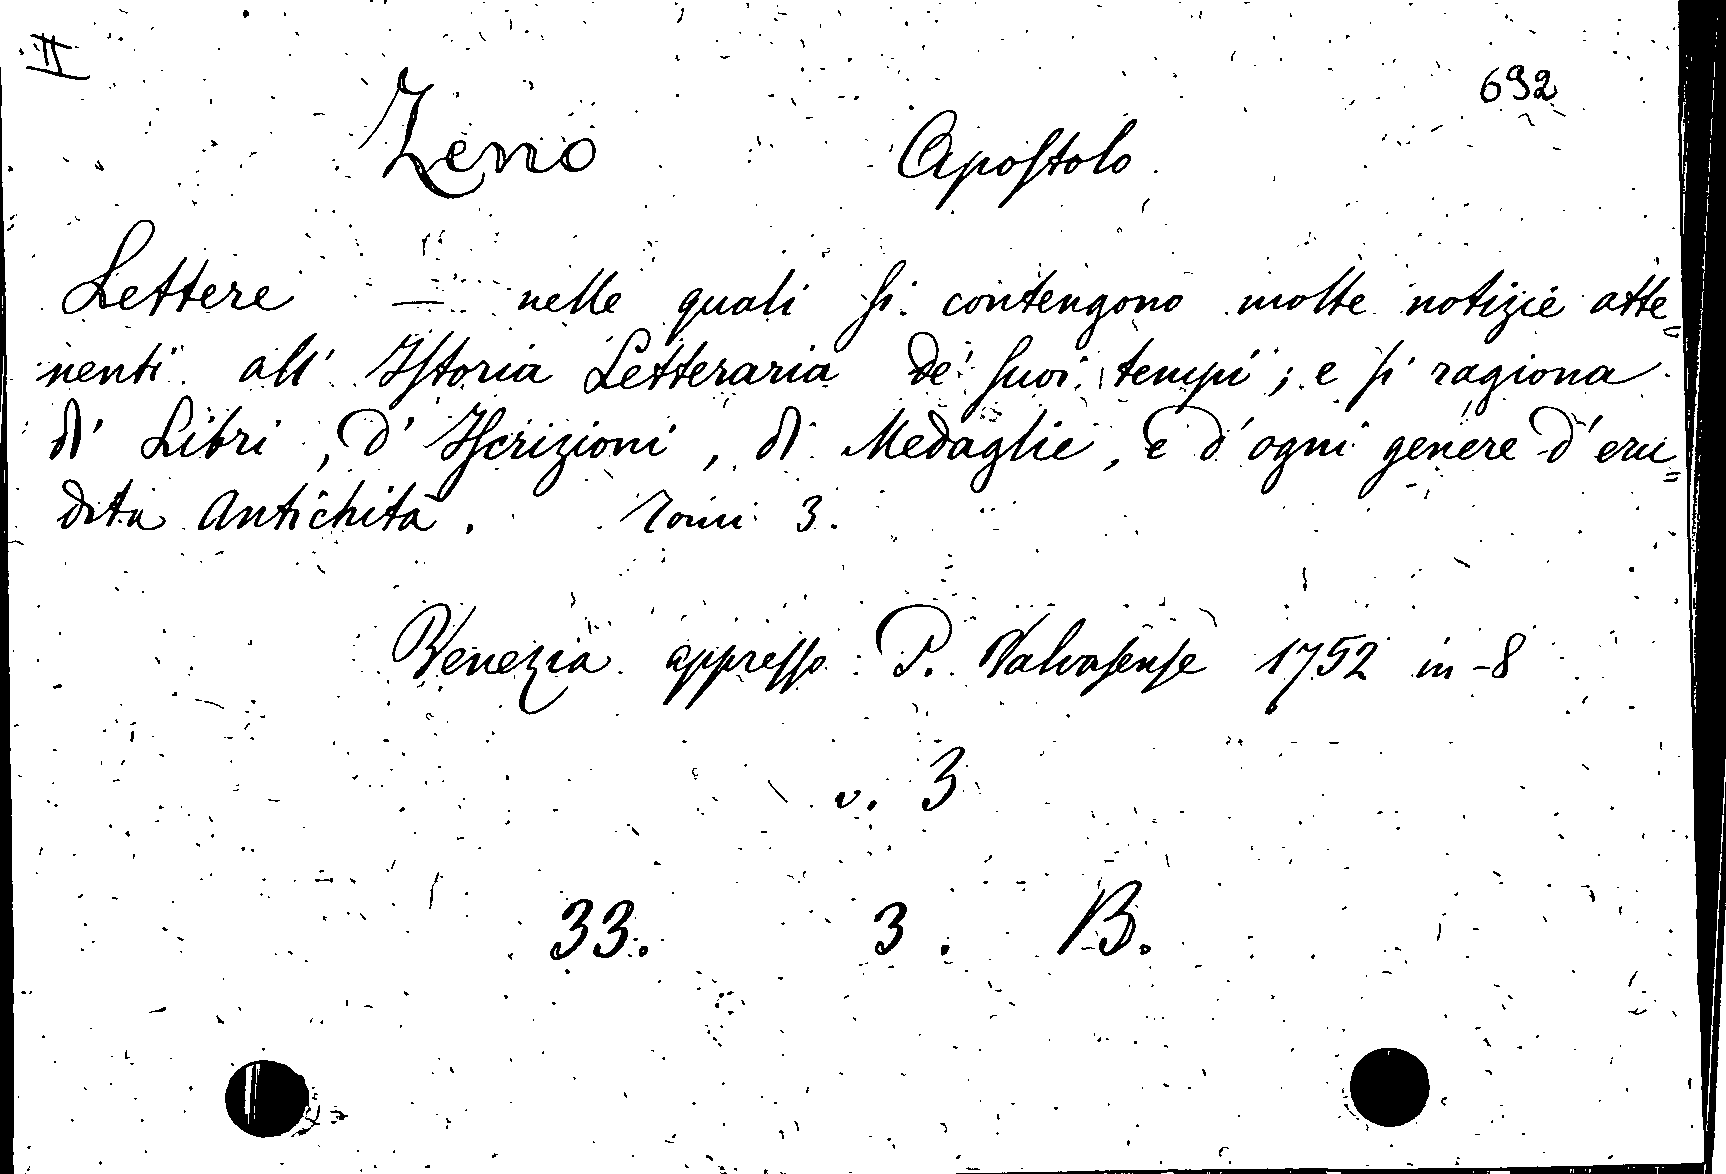 II
692
Zeno Apostolo
Lettere — nelle quali si contengono molte notizie atte=
nenti all' Istoria Letteraria de' suoi tempi ; e si ragiona
di Libri , d' Iscrizioni , di Medaglie , e d' ogni genere d' eru=
dita Antichità . Tomi 3.
Venezia appresso P. Valvasense 1752 in -8
v. 3
33. 3 . B.